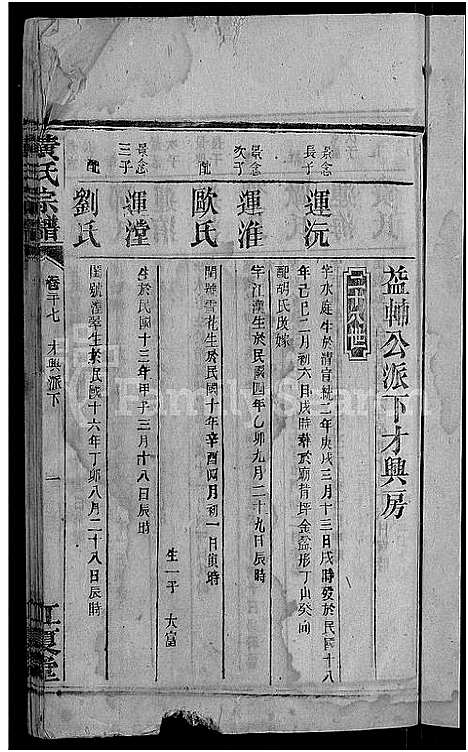 益軸公派下才興房
二十八世
景念長子 運沅 字水庭生於清宣統二年庚戌三月十三日戌時歿於民國十八
年己巳二月初六日戌時葬於廟背坪金盆形丁山癸向
配胡氏改嫁
景念次子 運淮 字江漢生於民國四年乙卯九月二十九日辰時
配 歐氏 閨號雪花生於民國十年辛酉四月初一日寅時
生一子 大富
景念三子 運瀅 生於民國十三年甲子三月十八日辰時
配 劉氏 閨號滿翠生於民國十六年丁卯八月二十八日辰時
黃氏宗譜
卷三十七 才興派下
一
江夏堂
FamilySearch